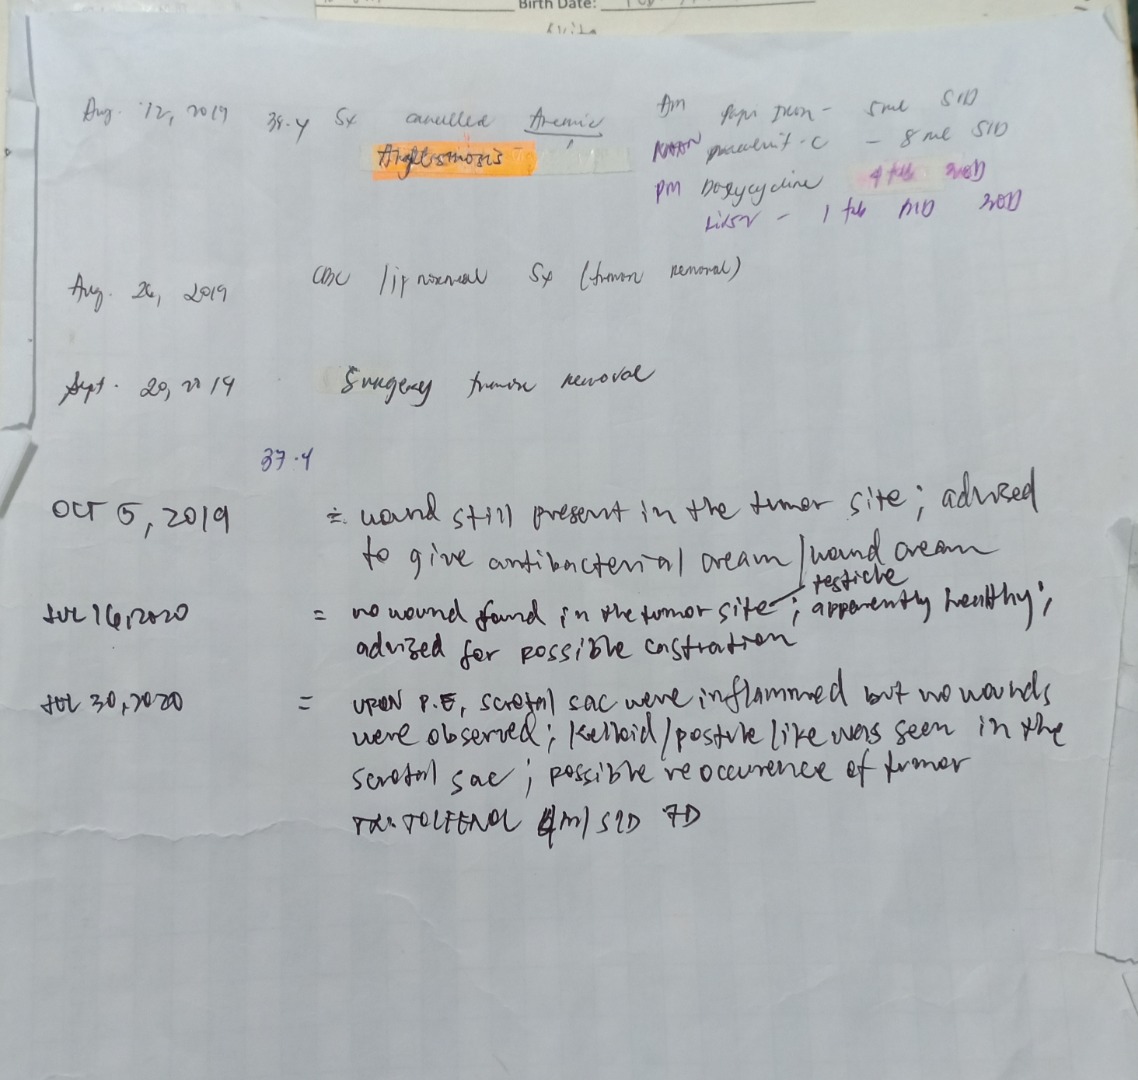 Birth Date:
Aug. 12, 2019 Sx cancelled Anemic Am Papi Iron - 5ml SID
NOON - 8 ml SID
PM Doxycycline 4 tab
1 tab
Aug. 26, 2019 CBC / normal Sx (tumor removal)
Sept. 20, 2019 Surgery tumor removal
37.4
OCT 5, 2019 = wound still present in the tumor site; advised
to give antibacterial cream / wound cream
testicle
JUL 16, 2020 = no wound found in the tumor site; apparently healthy;
advised for possible castration
JUL 30, 2020 = UPON P.E, scrotal sac were inflammed but no wounds
were observed; Kelloid/postule like was seen in the
scrotal sac; possible reoccurence of tumor
TOLFENOL SID 7D